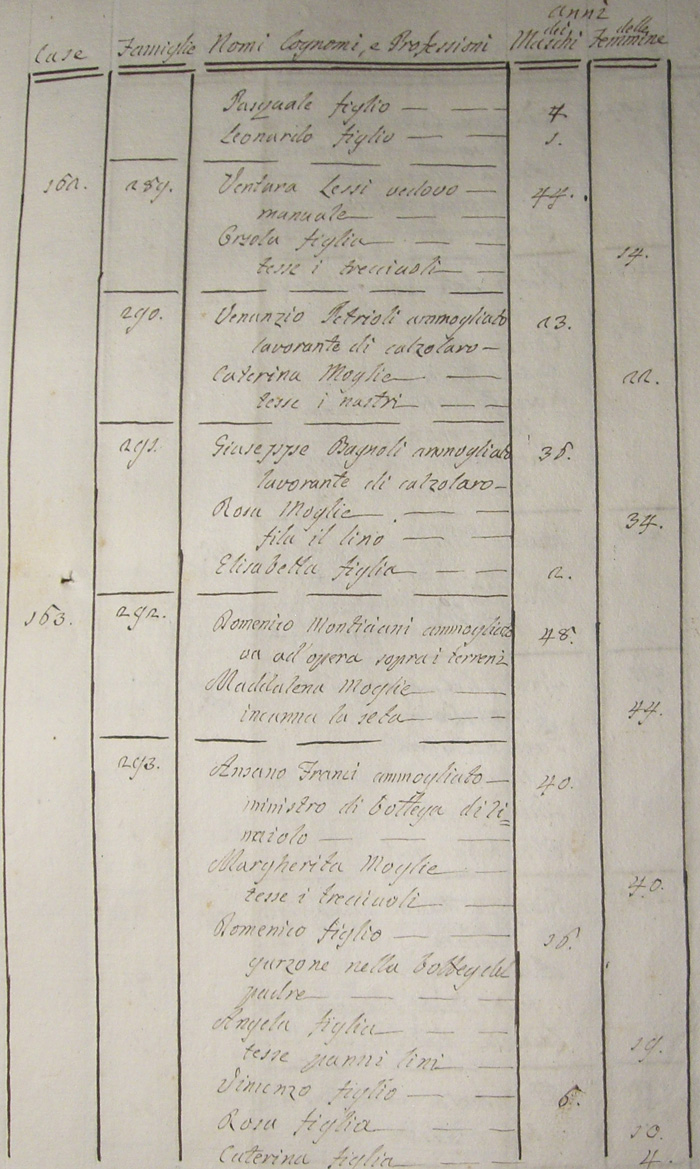 anni
Case Famiglie Nomi Cognomi, e Professioni dei Maschi delle Femmine
Pasquale figlio 4
Leonardo figlio 1.
162. 289. Ventura Lessi vedovo 44.
manuale
Orsola figlia 14.
tesse i trecciuoli
290. Venanzio Petrioli ammogliato 23.
lavorante di calzolaro
Caterina Moglie 22.
tesse i nastri
291. Giuseppe Bagnoli ammogliato 36.
lavorante di calzolaro
Rosa Moglie 34.
fila il lino
Elisabetta figlia 2.
163. 292. Domenico Monticiani ammogliato 48.
va ad'opera sopra i terreni
Maddalena Moglie
incanna la seta 44.
293. Ansano Franci ammogliato 40.
ministro di bottega di li=
naiolo
Margherita Moglie 40.
tesse i trecciuoli
Domenico figlio 16.
garzone nella bottega del
padre
Angela figlia 19.
tesse panni lini
Vincenzo figlio 6.
Rosa figlia 10.
Caterina figlia 4.